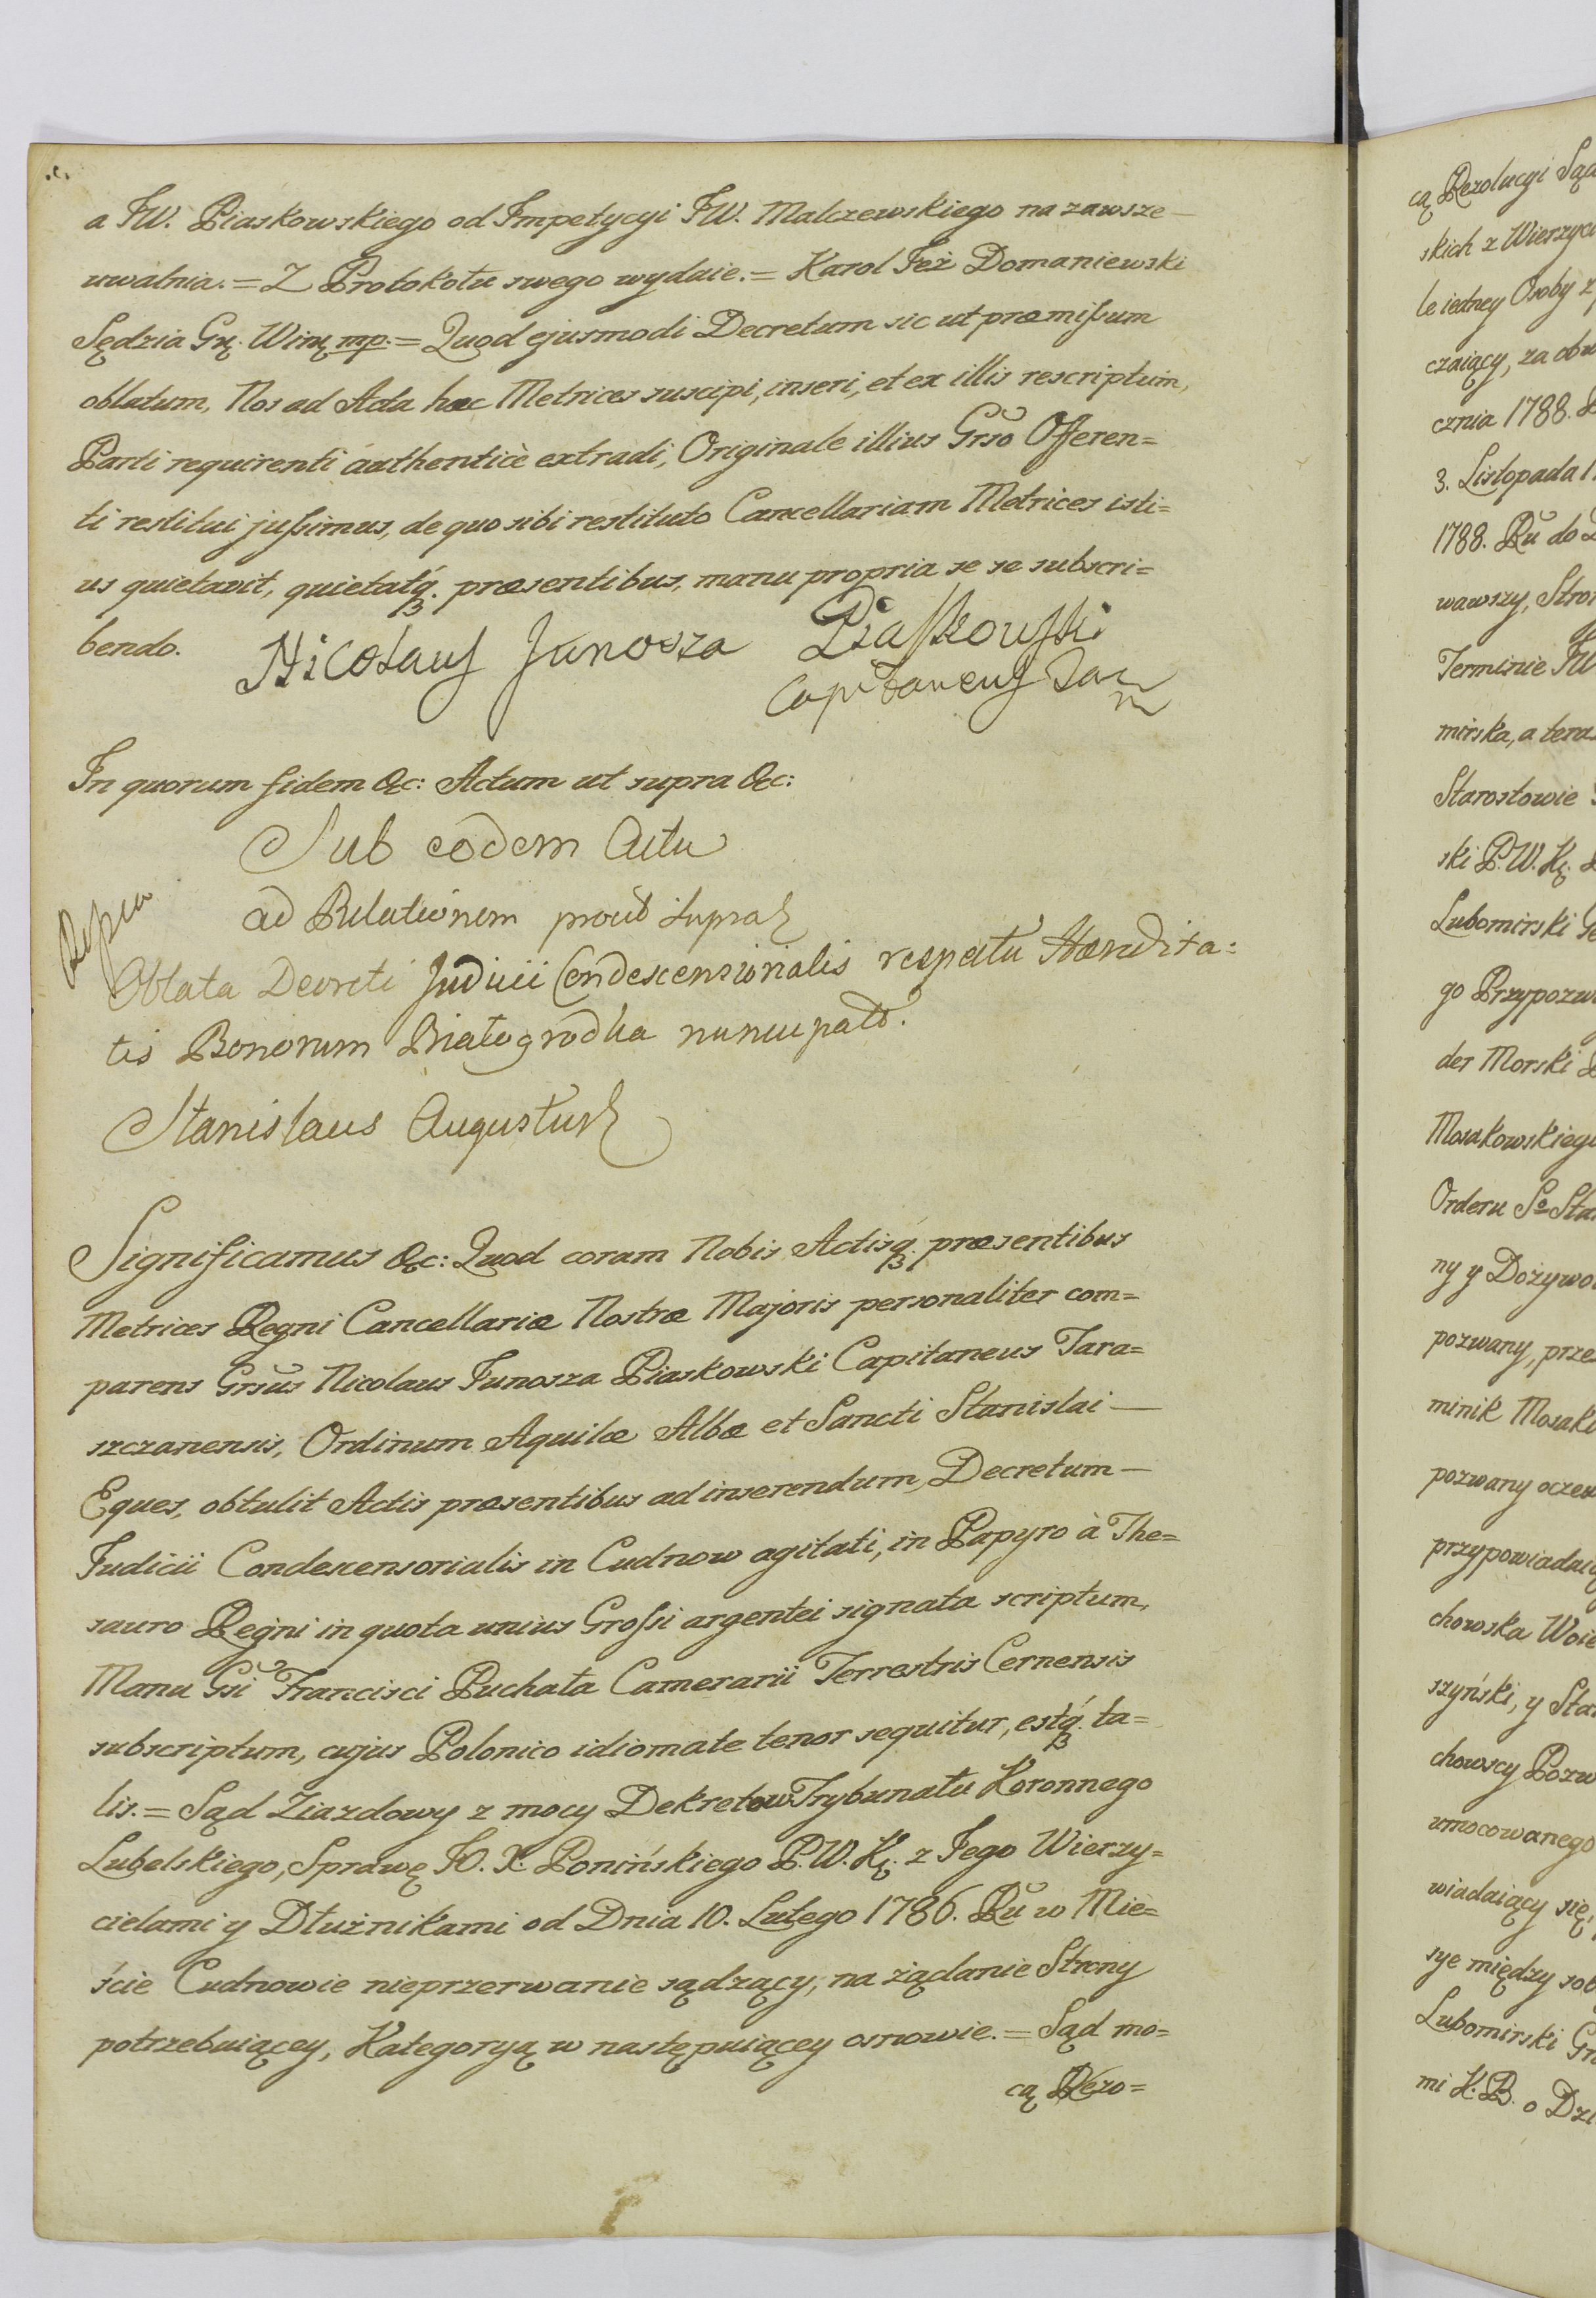 a JW. Piaskowskiego od Impetycyi JW. Malczewskiego na zawsze —
uwalnia. = Z Protokołu swego wydaie. = Karol Jeż Domaniewski
Sędzia Grę. Winę mp. = Quod ejusmodi Decretum sic ut præmissum
oblatum, Nos ad Acta hæc Metrices suscipi, inseri, et ex illis rescriptum,
Parti requirenti authenticè extradi, Originale illius Grso Offeren=
ti restitui jussimus, de quo sibi restituto Cancellariam Metrices isti=
us quietavit, quietatq. præsentibus, manu propria se se subscri=
bendo.
Nicolaus Junosza Piaskowski
Capitaneus Tar
mp
In quorum fidem &c: Actum ut supra &c:
Sub eodem Actu
ad Relationem prout supra
Oblata Decreti Judicii Condescensorialis respectu Hæredita=
tis Bonorum Białogrodka nuncupat.
Stanislaus Augustus
Significamus &c: Quod coram Nobis Actisq. præsentibus
Metrices Regni Cancellariæ Nostræ Majoris personaliter com=
parens Grsus Nicolaus Junosza Piaskowski Capitaneus Tara=
szczanensis, Ordinum Aquilæ Albæ et Sancti Stanislai —
Eques, obtulit Actis præsentibus ad inserendum, Decretum —
Judicii Condescensorialis in Cudnow agitati, in Papyro à The=
sauro Regni in quota unius Grossi argentei signata scriptum,
Manu Gsi Francisci Puchała Camerarii Terrestris Cernensis
subscriptum, cujus Polonico idiomate tenor sequitur, estq. ta=
lis. = Sąd Ziazdowy z mocy Dekretow Trybunału Koronnego
Lubelskiego, Sprawę JO. X. Ponińskiego P.W.Kę. z Jego Wierzy=
cielami y Dłużnikami od Dnia 10. Lutego 1786. Ru w Mie=
ście Cudnowie nieprzerwanie sądzący, na żądanie Strony
potrzebuiącey, Kategoryą w następuiącey osnowie. = Sąd mo=
cą Rezo=
cą Rezolucyi Są
skich z Wierzyc
le iedney Osoby z
czaiący, za obw
cznia 1788.
3. Listopada 1
1788. Ru do
wawszy, Stro
Terminie JW
mirska, a tera
Starostowie
ski P.W.Kę.
Lubomirski G
go Przypozw
der Morski
Mosakowskieg
Orderu So Sta
ny y Dożywo
pozwany, prze
minik Mosak
pozwany ocze
przypowiadai
chowska Woie
szyński, y Sta
chowscy Pozw
umocowanego
wiadaiący się,
sye między sob
Lubomirski G
mi K.B. o Dzi